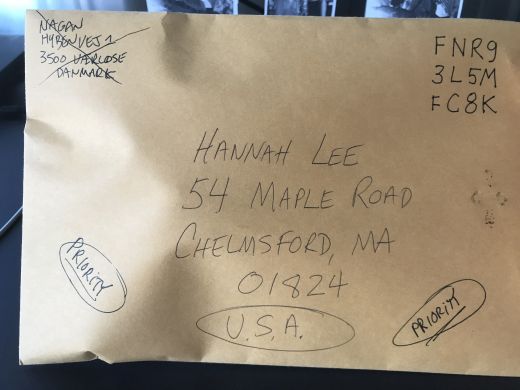 NAGAN
HYBENVEJ 1
3500 VÆRLØSE
DANMARK
FNR9
3L5M
FC8K
HANNAH LEE
54 MAPLE ROAD
CHELMSFORD, MA
01824
U.S.A.
PRIORITY
PRIORITY